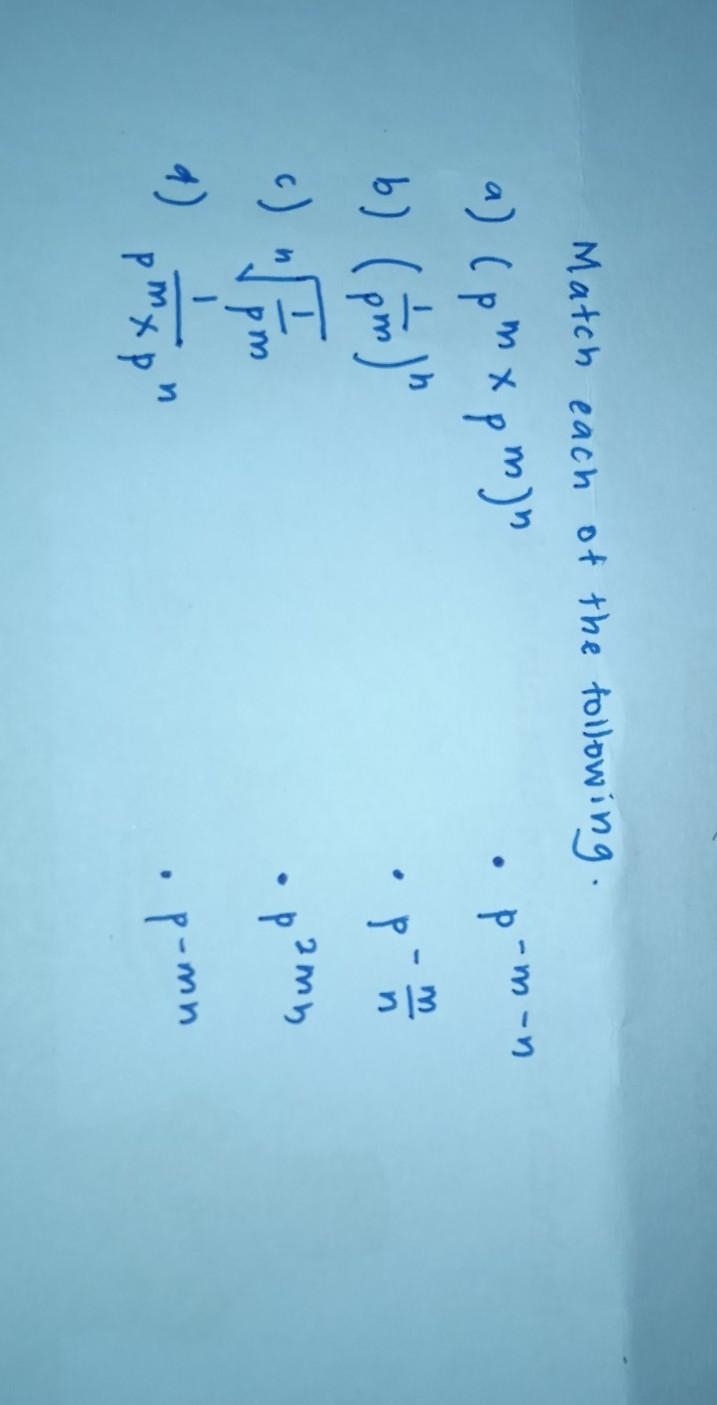 Match each of the following.
a) (p^m × p^m)^n • p^-m-n
b) (1/p^m)^n • p^-m/n
c) ⁿ√(1/p^m) • p^2mn
d) 1/(p^m × p^n) • p^-mn